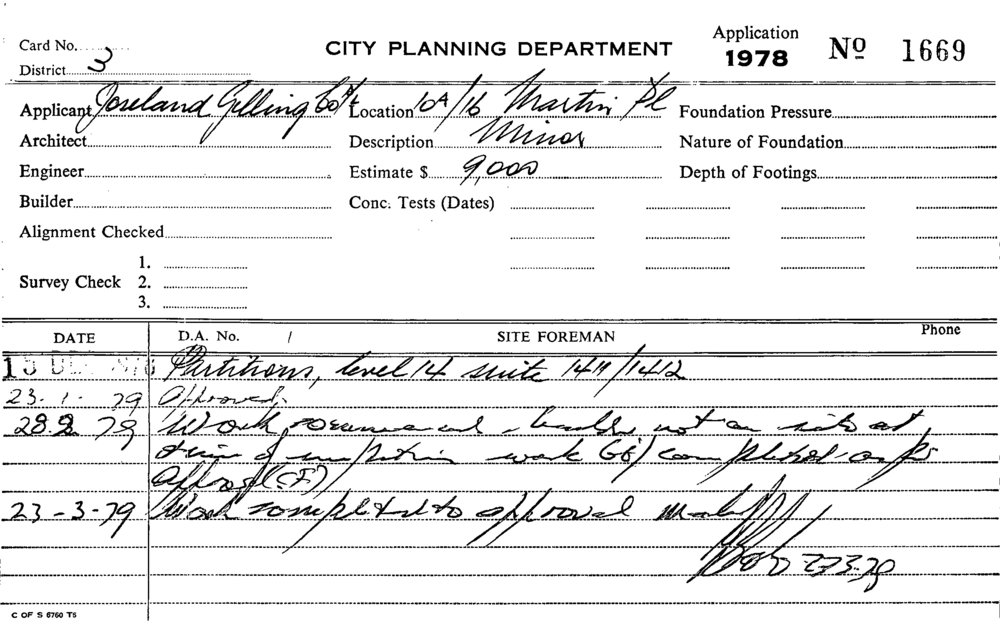 Card No.
CITY PLANNING DEPARTMENT
Application
1978 Nº 1669
District 3
Applicant Joseland Gilling Location 10A/16 Martin Pl Foundation Pressure
Architect Description Minor Nature of Foundation
Engineer Estimate $ 9,000 Depth of Footings
Builder Conc. Tests (Dates)
Alignment Checked
1.
Survey Check 2.
3.
DATE D.A. No. / SITE FOREMAN Phone
15 DEC 1978 Partitions, level 14 suite 1411/1412
23.1.79 Approved.
28.2.79 Work commenced - builder not on site at
time of inspection work completed as per
approval (CF)
23-3-79 Work completed to approval
C OF S 6760 T5